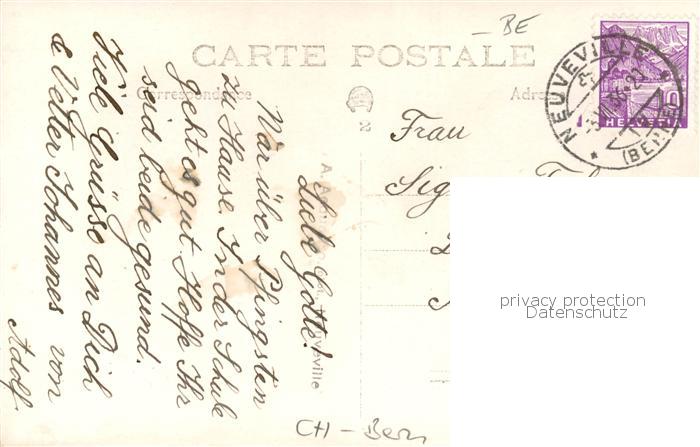 BE
CARTE POSTALE
Correspondance
Adres
NEUVEVILLE
(BERNE)
10
HELVETIA
2
Frau
Sig
Liebe Gotte!
War über Pfingsten
zu Hause. In der Schule
geht es gut. Hoffe Ihr
seid beide gesund.
Viele Grüsse an Dich
& Vetter Johannes von
Adolf.
Neuveville
privacy protection
Datenschutz
CH - Bern